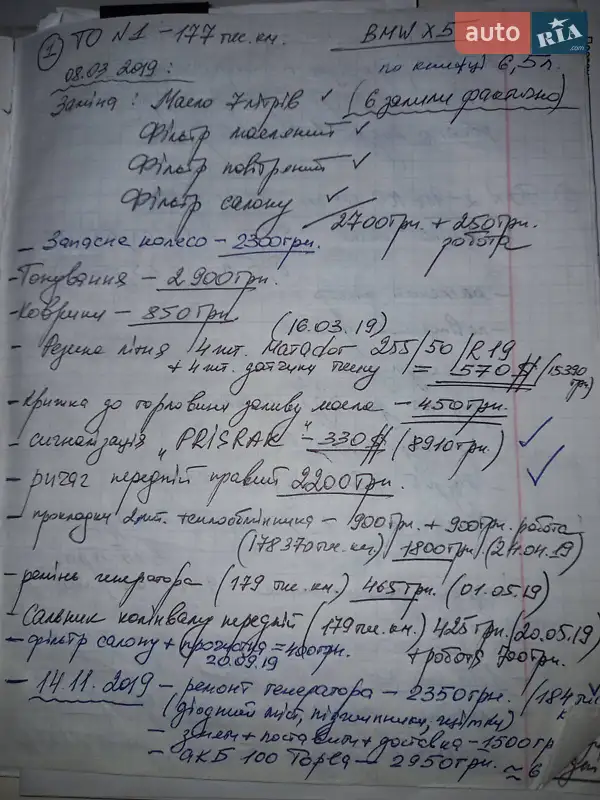 auto RIA.com
① ТО N1 - 177 тис. км. BMW X5
08.03.2019: по книжці 6,5л.
Заміна: Масло 7літрів ✓ (6 залили фактично)
Фільтр масляний ✓
Фільтр повітряний ✓
Фільтр салону ✓
2700грн. + 250грн.
робота
- Запасне колесо - 2300грн.
- Тонування - 2900грн.
- Коврики - 850грн
(16.03.19)
- Резина літня 4шт. Матадог 255/50/R19
+ 4шт. датчики тиску = 570$ (15390
грн)
- Кришка до горловини заливу масла - 450грн.
- сигналізація "PRISRAK" - 330$ (8910грн.) ✓
- ричаг передній правий 2200грн. ✓
- прокладки 2шт. теплообмінника - 900грн. + 900грн. робота
(178370тис.км.) 1800грн. (24.04.19)
- ремінь генератора (179 тис. км.) 465грн. (01.05.19)
- Сальник колінвалу передній (179тис.км.) 425грн. (20.05.19)
- фільтр салону + прочистка = 400грн. + робота 700грн.
20.09.19
- 14.11.2019 - ремонт генератора - 2350грн. (184тис
к
(діодний міст, підшипники, щітки)
- зняти + поставити + доставка - 1500гр
- АКБ 100 Торба - 2950грн. ≈ 6